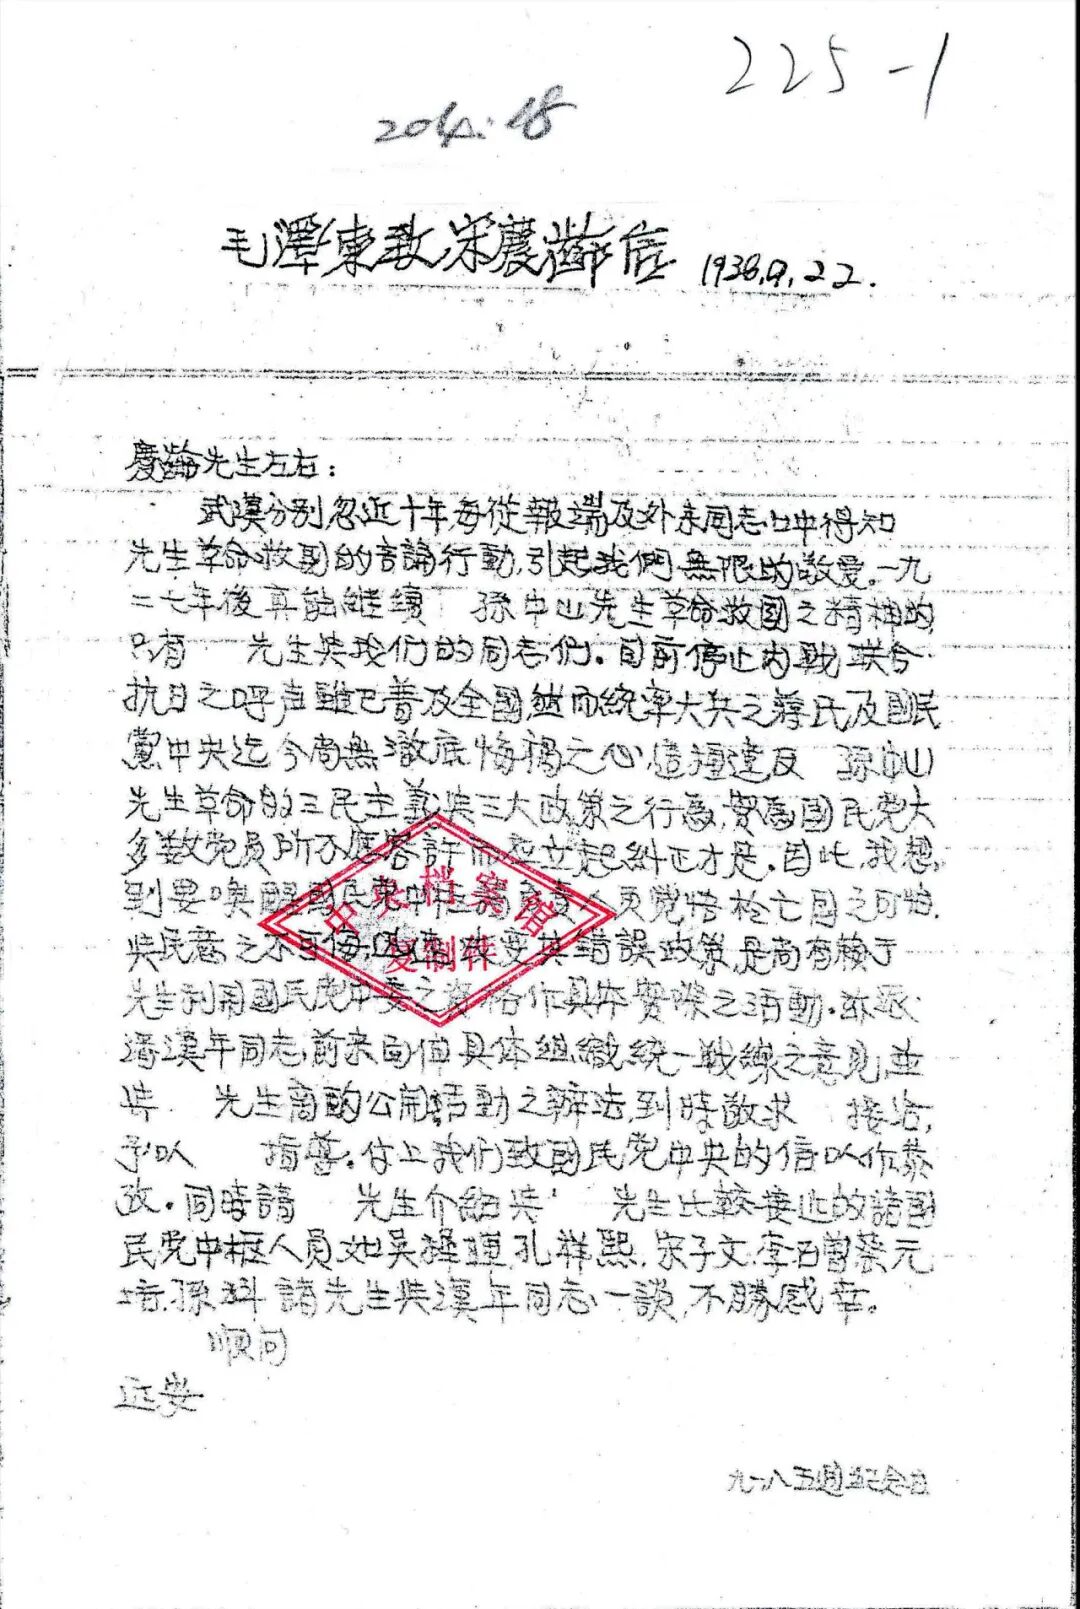 225-1
204:48
毛澤東致宋慶齡信 1936.9.22.
慶齡先生左右：
武漢分别忽近十年每從報端及外来同志口中得知
先生革命救國的言論行動,引起我們無限的敬愛。一九
二七年後真能継續 孫中山先生革命救國之精神的
只有 先生共我们的同志们。目前停止内戰联合
抗日之呼声雖已普及全國,然而統率大兵之蒋氏及國民
黨中央迄今尚無澈底悔禍之心,這種違反 孫中山
先生革命的三民主義共三大政策之行為,實為國民党大
多数党员所不應容許而应立起糾正才是。因此,我想,
到要唤醒國民党中 员覚悟於亡國之可怕,
共民意之不可侮, 变其錯誤政策,是尚有賴于
先生利用國民党中委之资格作具体實際之活動。兹派
潘漢年同志前来面伸具体組織統一戰線之意見,並
共 先生商酌公開活動之辦法,到時敬求 接洽,
予以 指導。付上我们致國民党中央的信以作恭
攷。同時請 先生介紹共 先生比較接近的諸國
民党中枢人员,如吳稚暉,孔祥熙,宋子文,李石曾,蔡元
培,孫科諸先生共漢年同志一談,不勝感幸。
順问
近安
九一八五週紀念日
中央档案馆
复制件